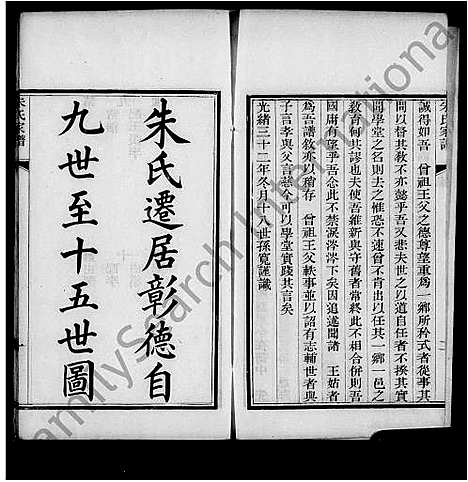 朱氏家譜
誠得如吾　曾祖王父之德尊望重為一鄉所矜式者從事其
間以督其教不亦懿乎吾又悲夫世之以道自任者不揆其實
聞學堂之名則去之惟恐不速曾不肯出以任其一鄉一邑之
教育何其謬也夫使吾維新與守舊者常終此不相合併則吾
國庸有望乎吾念此不禁淚涔涔下矣因追述聞諸　王姑者
為吾譜敘亦以稍存　曾祖王父軼事並以詔有志輔世者與
子言孝與父言慈今可以學堂實踐其言矣
光緒三十二年冬月十八世孫寬謹識
朱氏遷居彰德自
九世至十五世圖
朱氏家譜
FamilySearch International